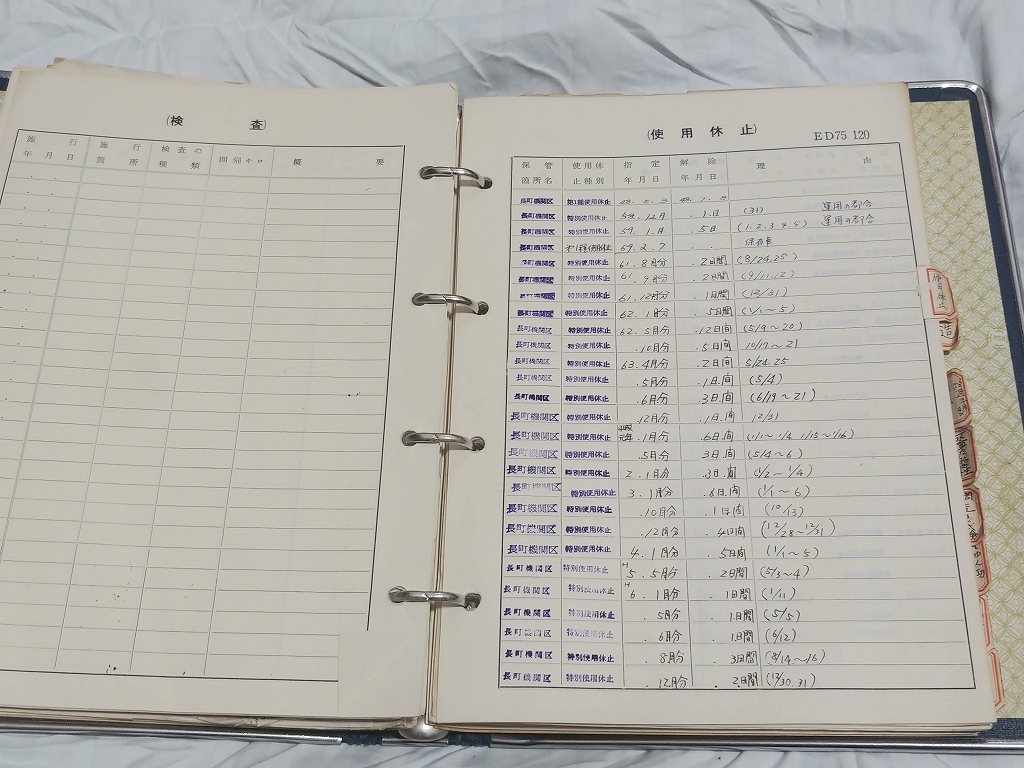 (検 査)
施行年月日 施行箇所 検査の種類 回帰キロ 概要
(使用休止) ED75 120
保管箇所名 使用休止種別 指定年月日 解除年月日 理由
長町機関区 第1種使用休止
長町機関区 特別使用休止 58.12月 .1日 (31) 運用の都合
長町機関区 特別使用休止 59.1月 .5日 (1.2.3.4.5) 運用の都合
長町機関区 59.2.7
長町機関区 特別使用休止 61.8月分 .2日間 (8/24.25)
長町機関区 特別使用休止 61.9月分 .2日間 (9/11.12)
長町機関区 特別使用休止 61.12月分 .1日間 (12/31)
長町機関区 特別使用休止 62.1月分 .5日間 (1/1~5)
長町機関区 特別使用休止 62.5月分 .12日間 (5/9~20)
長町機関区 特別使用休止 .10月分 .5日間 10/17~21
長町機関区 特別使用休止 63.4月分 .2日間 5/24.25
長町機関区 特別使用休止 .5月分 .1日間 (5/4)
長町機関区 特別使用休止 .6月分 .3日間 (6/19~21)
長町機関区 特別使用休止 .12月分 .1日間 12/31
長町機関区 特別使用休止 平成元年.1月分 .6日間 (1/1~1/4 1/15~1/16)
長町機関区 特別使用休止 .5月分 3日間 (5/4~6)
長町機関区 特別使用休止 2.1月分 .3日間 (1/2~1/4)
長町機関区 特別使用休止 3.1月分 .6日間 (1/1~6)
長町機関区 特別使用休止 .10月分 .1日間 (10/13)
長町機関区 特別使用休止 .12月分 .4日間 (12/28~12/31)
長町機関区 特別使用休止 4.1月分 .5日間 (1/1~5)
長町機関区 特別使用休止 H5.5月分 .2日間 (5/3~4)
長町機関区 特別使用休止 H6.1月分 .1日間 (1/11)
長町機関区 特別使用休止 .5月分 .1日間 (5/5)
長町機関区 特別使用休止 .6月分 .1日間 (6/12)
長町機関区 特別使用休止 .8月分 .3日間 (8/14~16)
長町機関区 特別使用休止 .12月分 .2日間 (12/30.31)